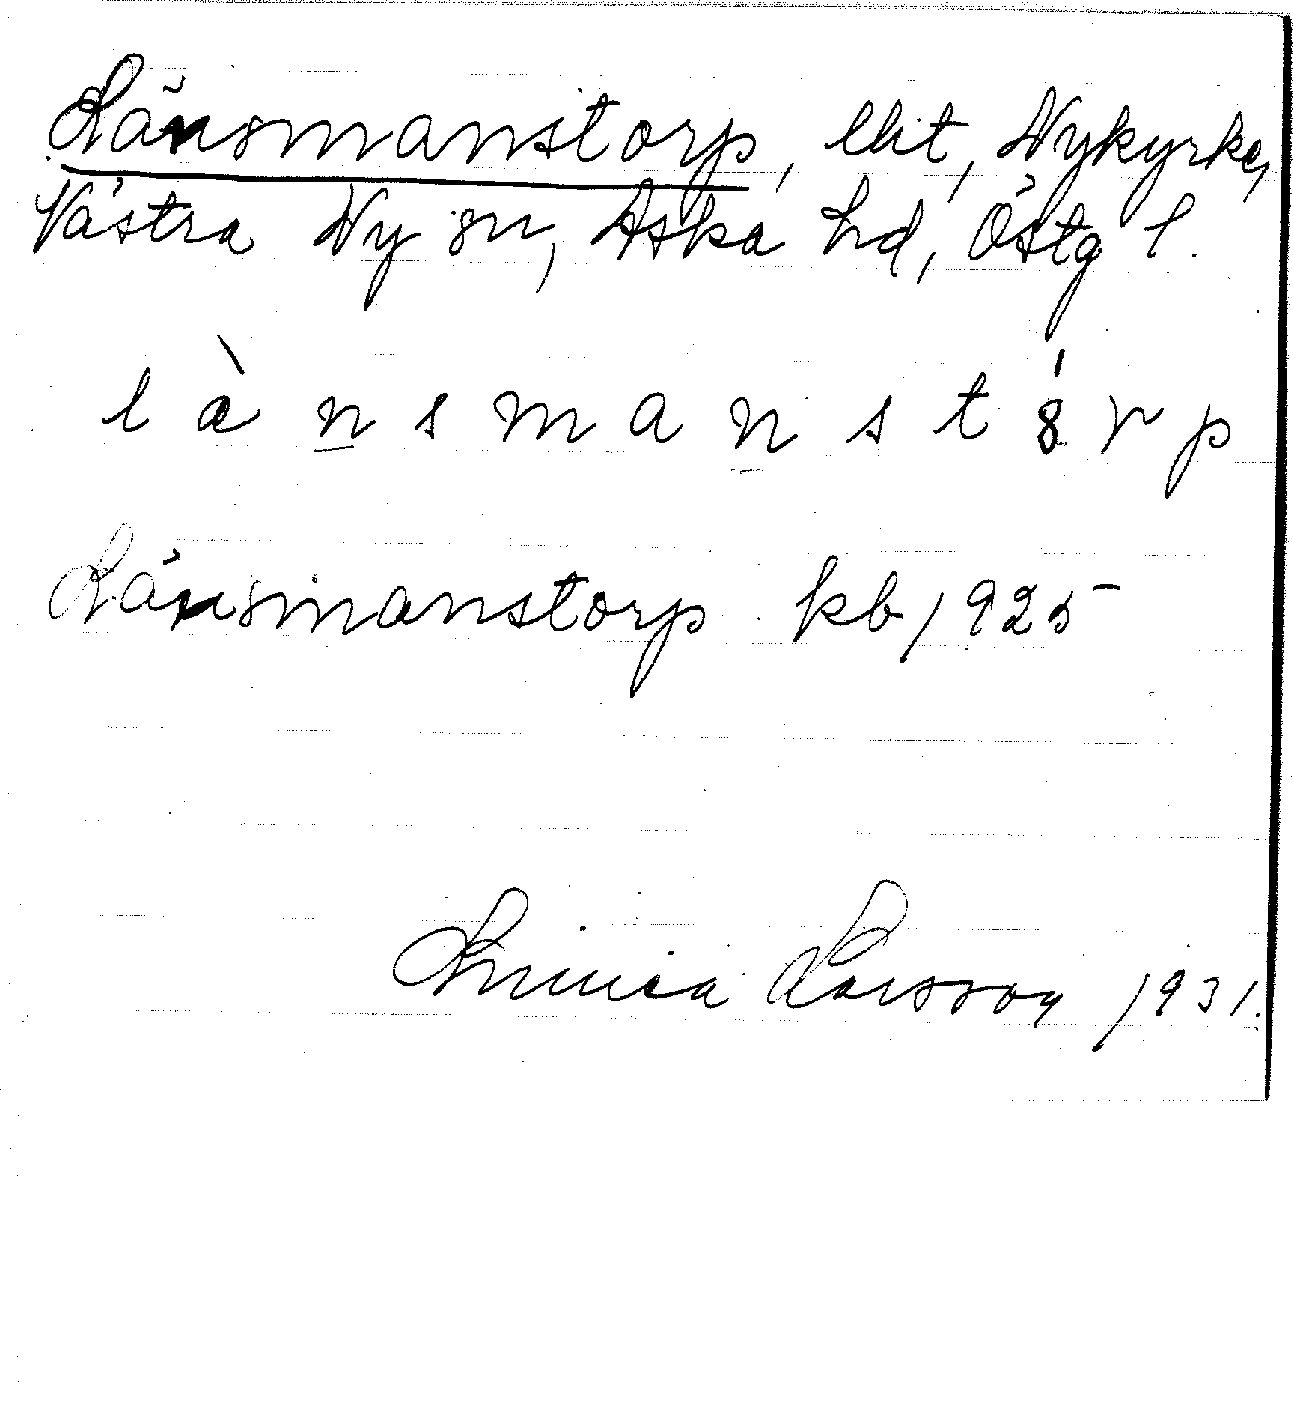 Länsmanstorp, llit, Nykyrka,
Västra Ny sn, Aska hd, Östg l.
l à n s m a n s t ó r p
Länsmanstorp kb 1925
Linnea Larsson 1931.